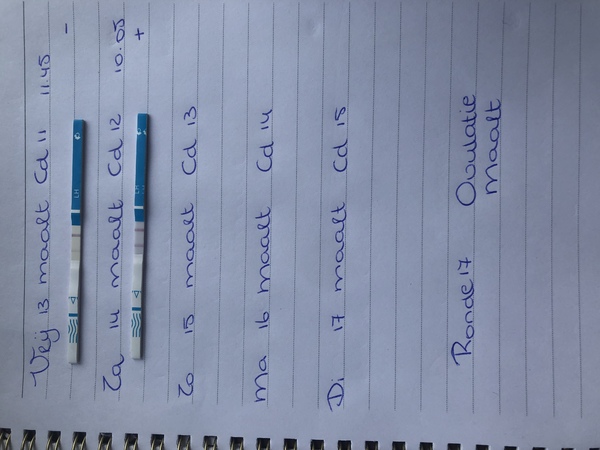 Vrij 13 maart Cd 11 11.45 -
LH
Za 14 maart Cd 12 10.05 +
LH
Zo 15 maart Cd 13
Ma 16 maart Cd 14
Di 17 maart Cd 15
Ronde 17 Ovulatie
Maart